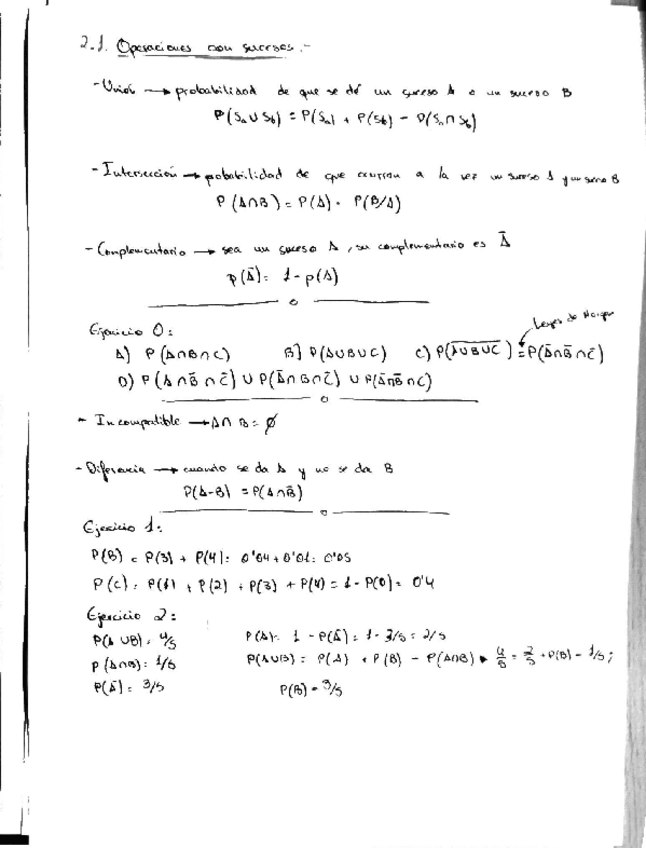 2.1. Operaciones con sucesos.-
- Unión → probabilidad de que se dé un suceso A o un suceso B
P(Sa ∪ Sb) = P(Sa) + P(Sb) - P(Sa ∩ Sb)
- Intersección → pobabilidad de que ocurran a la vez un suceso A y un suceso B
P(A∩B) = P(A) · P(B/A)
- Complementario → sea un suceso A, su complementario es Ā
p(Ā) = 1 - p(A)
Ejercicio 0:
Leyes de Morgan
A) P(A∩B∩C) B] P(A∪B∪C) C) P(A̅∪̅B̅∪̅C̅) = P(Ā∩B̄∩C̄)
D) P(A∩B̄∩C̄) ∪ P(Ā∩B∩C̄) ∪ P(Ā∩B̄∩C)
- Incompatible → A∩B = ∅
- Diferencia → cuando se da A y no se da B
P(A-B) = P(A∩B̄)
Ejercicio 1:
P(B) = P(3) + P(4) = 0'04 + 0'01 = 0'05
P(C) = P(1) + P(2) + P(3) + P(4) = 1 - P(0) = 0'4
Ejercicio 2:
P(A∪B) = 4/5 P(A) = 1 - P(Ā) = 1 - 3/5 = 2/5
P(A∩B) = 1/5 P(A∪B) = P(A) + P(B) - P(A∩B) → 4/5 = 2/5 + P(B) - 1/5;
P(Ā) = 3/5 P(B) = 3/5